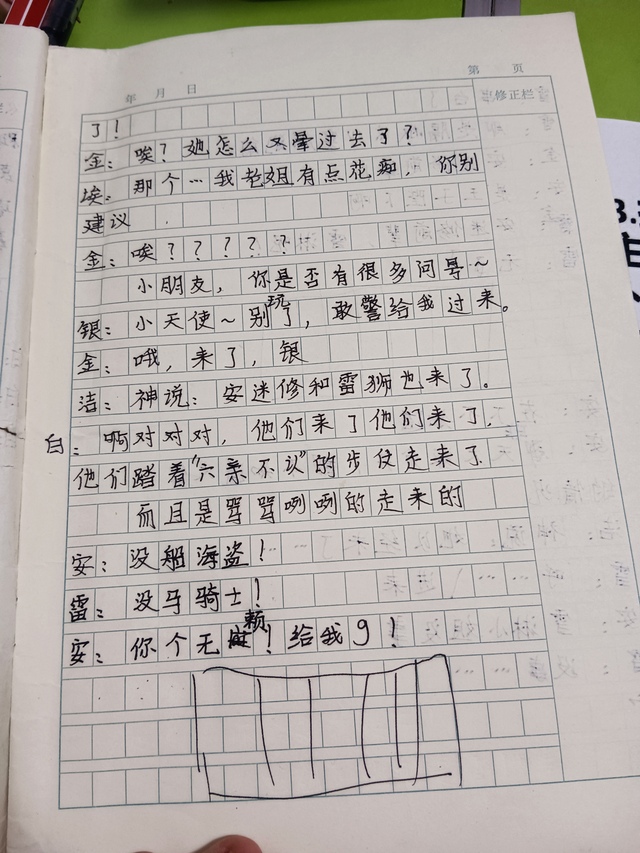 年 月 日
第 页
修正栏
了！
金：唉？她怎么又晕过去了？
埃：那个…我老姐有点花痴，你别
建议
金：唉？？？？？
小朋友，你是否有很多问号～
银：小天使～别玩了，敢警给我过来。
金：哦，来了，银
洁：神说：安迷修和雷狮也来了。
白：啊对对对，他们来了他们来了，
他们踏着“六亲不认”的步伐走来了
而且是骂骂咧咧的走来的
安：没船海盗！
雷：没马骑士！
安：你个无颜！给我9！